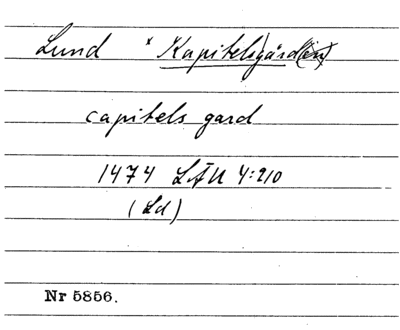 Lund × Kapitelsgård(en)
capitels gard
1474 LÄU 4:210
(Ld)
Nr 5856.